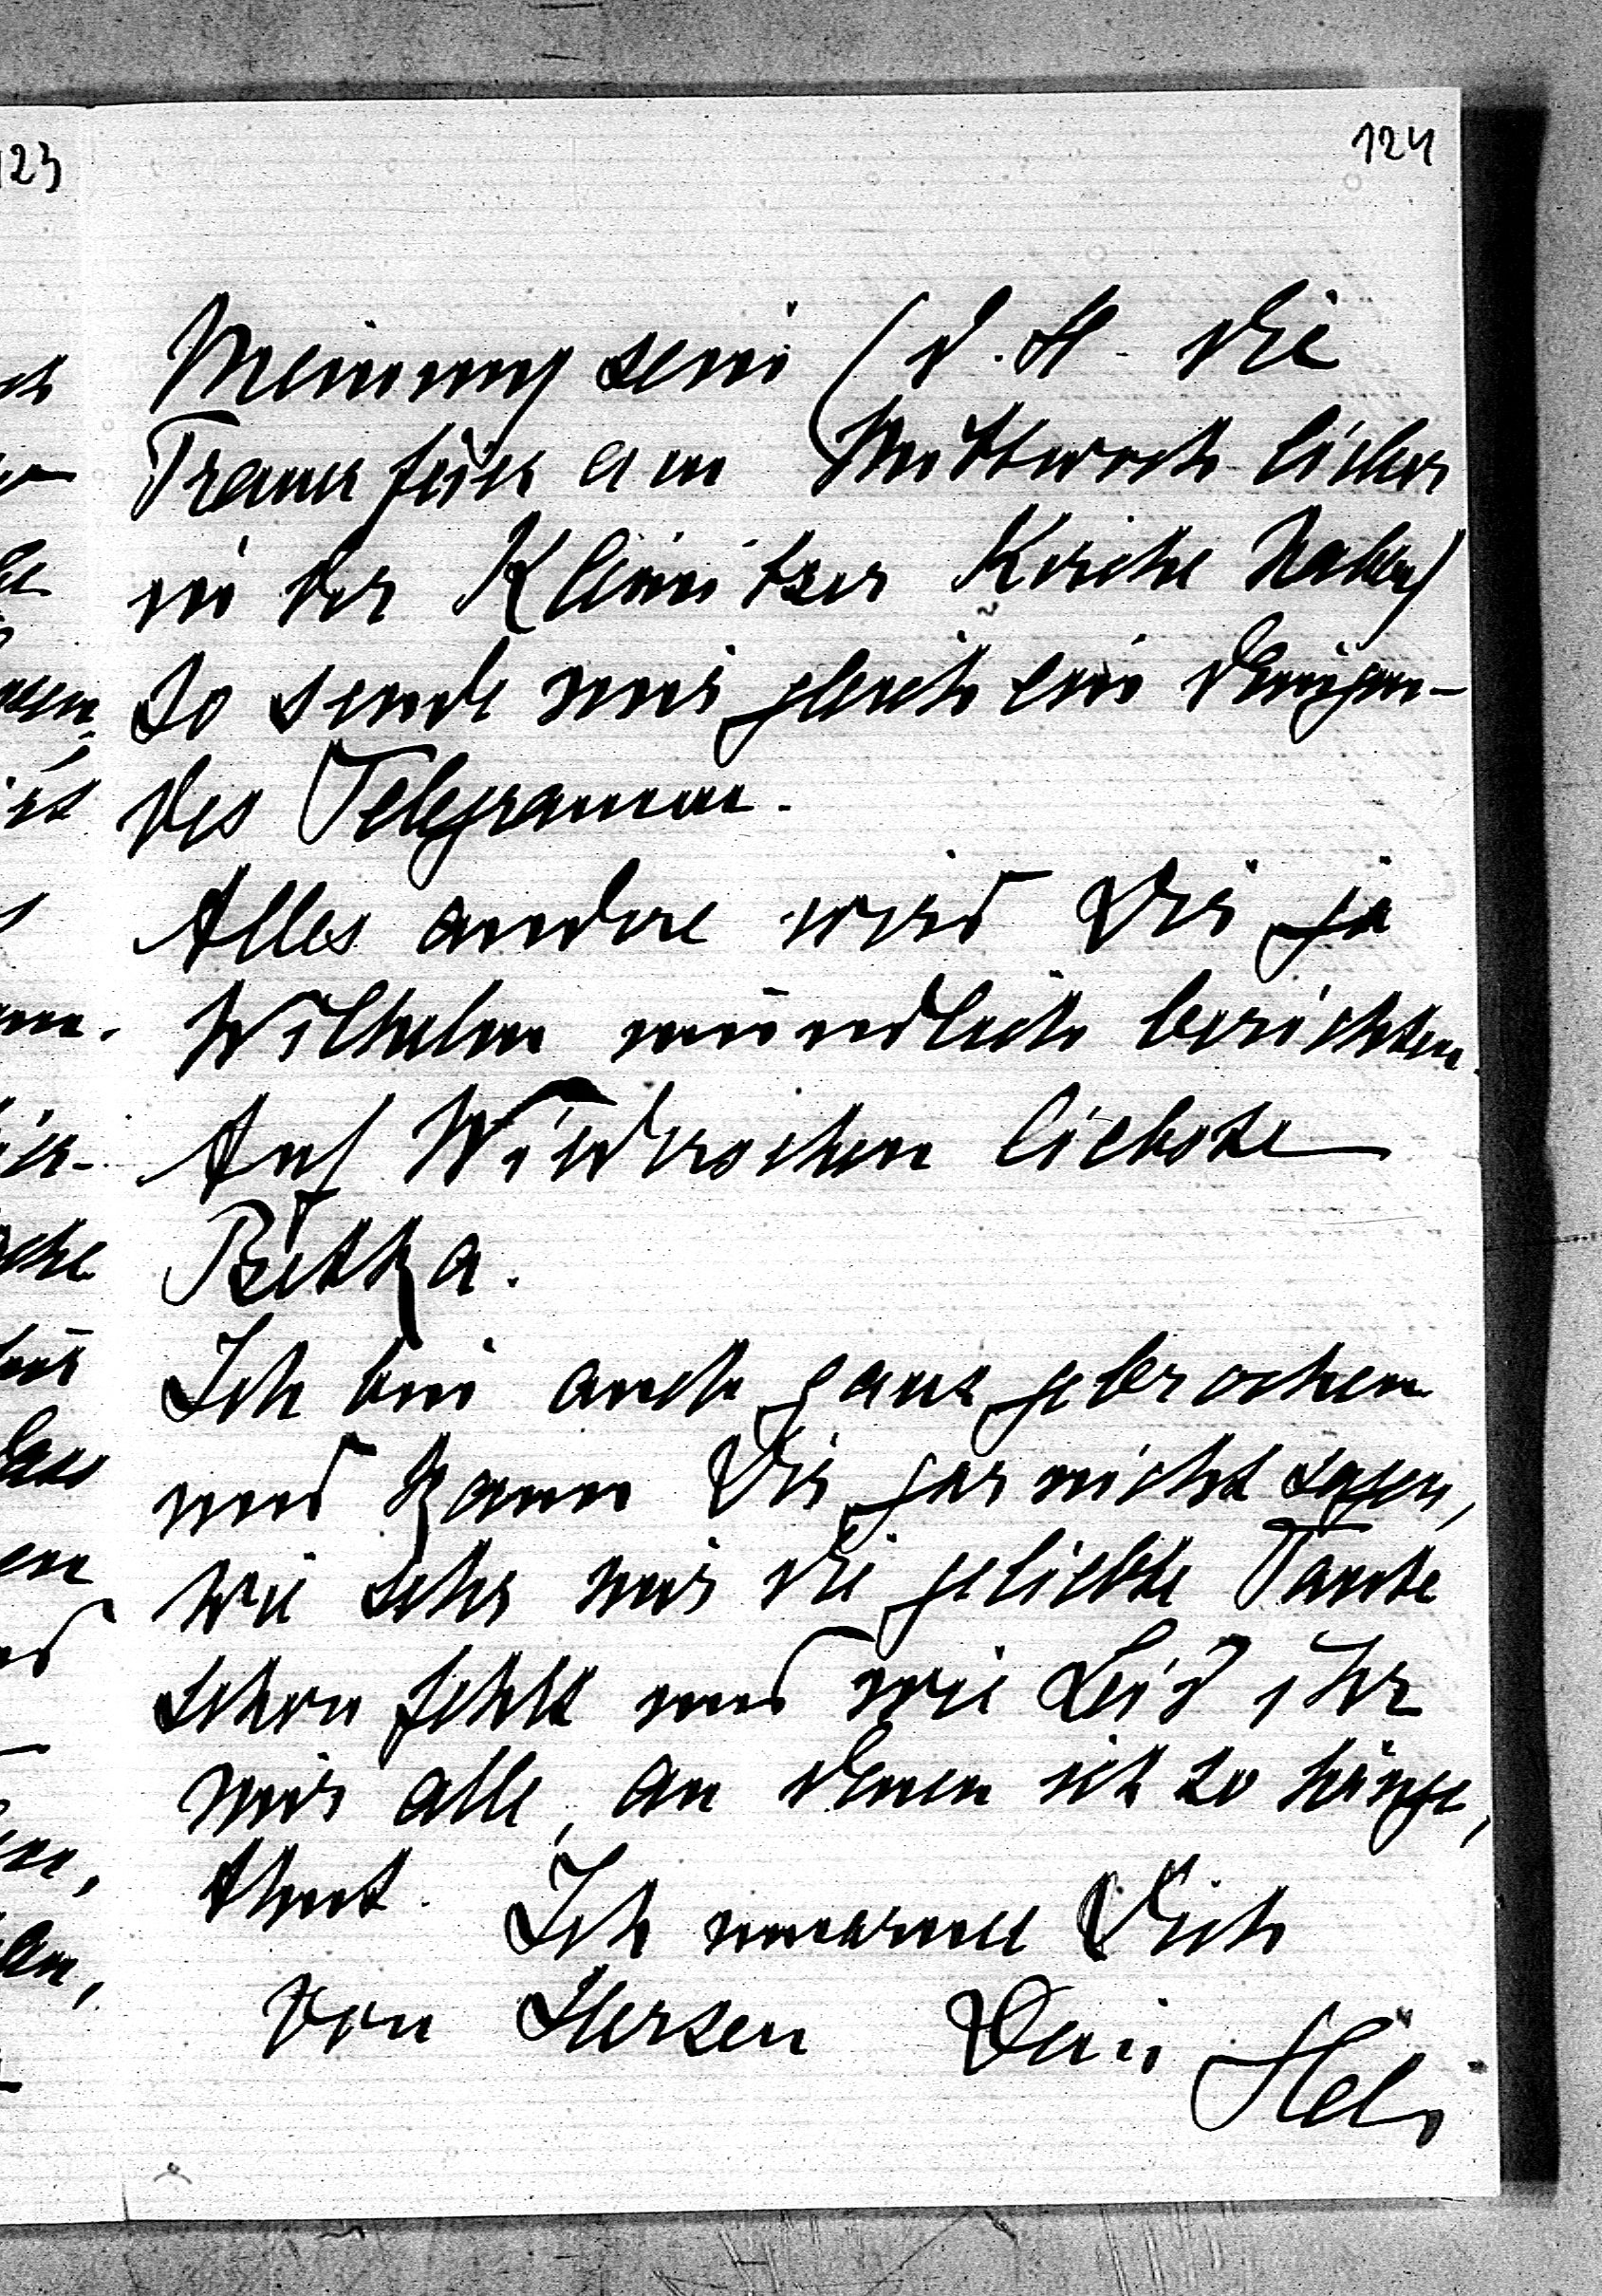 124
Meinung sein (d. H. die
Trauerfeier am Mittwoch lieber
in der Kleinitzer Kirche haben)
so sende mir gleich ein dringen-
des Telegramm.
Alles andere wird Dir ja
Wilhelm mündlich berichten.
Auf Wiedersehen liebste
Betka.
Ich bin auch ganz gebrochen
und kann Dir gar nicht sagen,
wie sehr mir die geliebte Tante
schon fehlt und wie Leid ihr
mir alle, an denen ich so hänge,
thut. Ich umarme Dich
von Herzen Dein